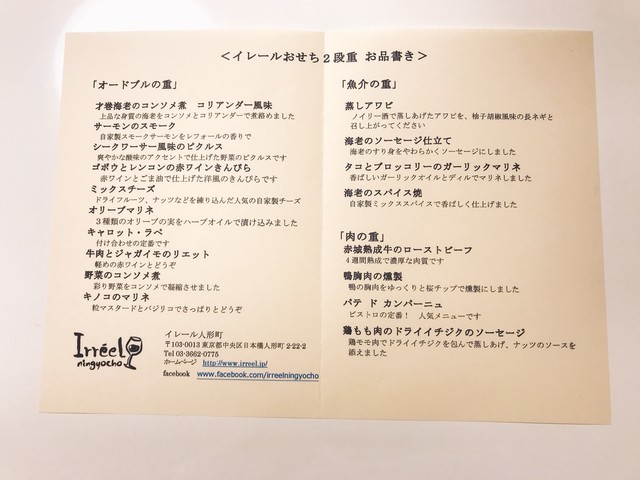 ＜イレールおせち２段重 お品書き＞
「オードブルの重」
才巻海老のコンソメ煮　コリアンダー風味
上品な身質の海老をコンソメとコリアンダーで煮絡めました
サーモンのスモーク
自家製スモークサーモンをレフォールの香りで
シークワーサー風味のピクルス
爽やかな酸味のアクセントで仕上げた野菜のピクルスです
ゴボウとレンコンの赤ワインきんぴら
赤ワインとごま油で仕上げた洋風のきんぴらです
ミックスチーズ
ドライフルーツ、ナッツなどを練り込んだ人気の自家製チーズ
オリーブマリネ
３種類のオリーブの実をハーブオイルで漬け込みました
キャロット・ラペ
付け合わせの定番です
牛肉とジャガイモのリエット
軽めの赤ワインとどうぞ
野菜のコンソメ煮
彩り野菜をコンソメで凝縮させました
キノコのマリネ
粒マスタードとバジリコでさっぱりとどうぞ
Irréel
ningyocho
イレール人形町
〒103-0013 東京都中央区日本橋人形町 2-22-2
Tel 03-3662-0775
ホームページ http://www.irreel.jp/
facebook www.facebook.com/irreelningyocho
「魚介の重」
蒸しアワビ
ノイリー酒で蒸しあげたアワビを、柚子胡椒風味の長ネギと
召し上がってください
海老のソーセージ仕立て
海老のすり身をやわらかくソーセージにしました
タコとブロッコリーのガーリックマリネ
香ばしいガーリックオイルとディルでマリネしました
海老のスパイス焼
自家製ミックススパイスで香ばしく仕上げました
「肉の重」
赤城熟成牛のローストビーフ
４週間熟成で濃厚な肉質です
鴨胸肉の燻製
鴨の胸肉をゆっくりと桜チップで燻製にしました
パテ ド カンパーニュ
ビストロの定番！　人気メニューです
鶏もも肉のドライイチジクのソーセージ
鶏モモ肉でドライイチジクを包んで蒸しあげ、ナッツのソースを
添えました